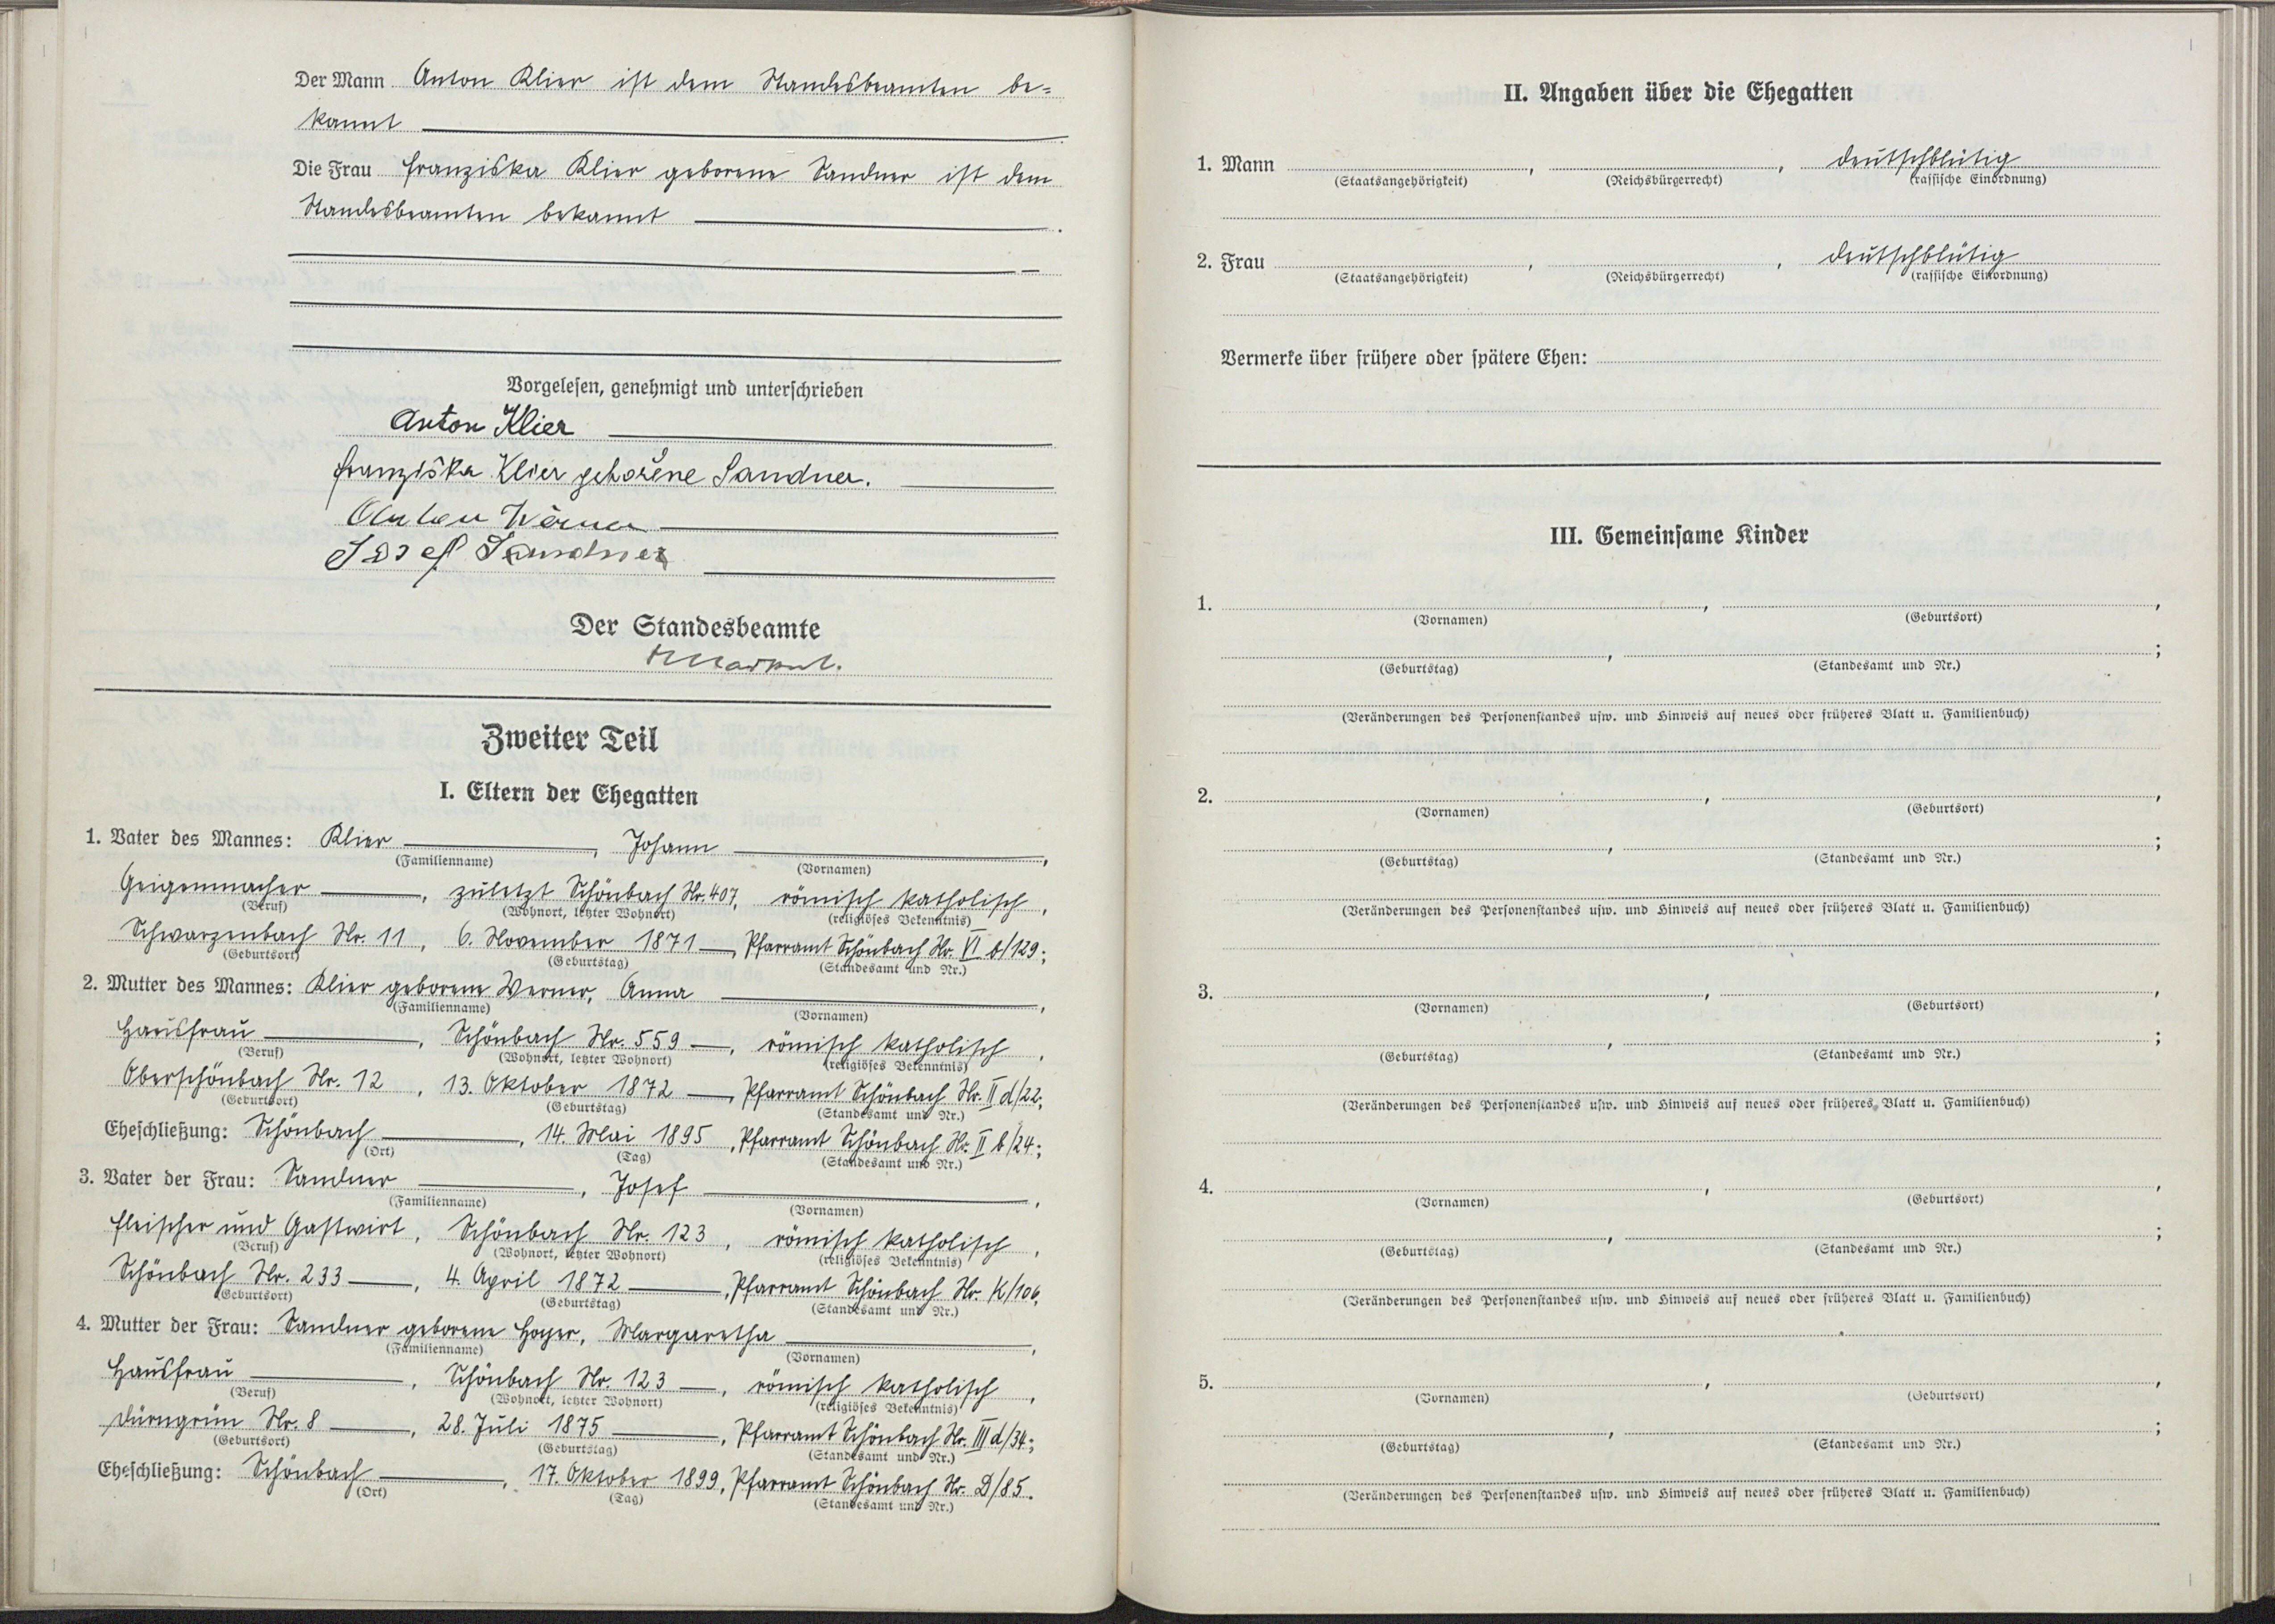 Der Mann Anton Klier ist dem Standesbeamten be=
kannt
Die Frau Franziska Klier geborene Sandner ist dem
Standesbeamten bekannt.
Vorgelesen, genehmigt und unterschrieben
Anton Klier
Franziska Klier geborene Sandner.
Josef Sandner
Der Standesbeamte
Zweiter Teil
I. Eltern der Ehegatten
1. Vater des Mannes: Klier, Johann,
(Familienname) (Vornamen)
Geigenmacher, zuletzt Schönbach Nr. 407, römisch katholisch,
(Beruf) (Wohnort, letzter Wohnort) (religiöses Bekenntnis)
Schwarzenbach Nr. 11, 6. November 1871, Pfarramt Schönbach Nr. VI b/129;
(Geburtsort) (Geburtstag) (Standesamt und Nr.)
2. Mutter des Mannes: Klier geborene Werner, Anna,
(Familienname) (Vornamen)
Hausfrau, Schönbach Nr. 559, römisch katholisch,
(Beruf) (Wohnort, letzter Wohnort) (religiöses Bekenntnis)
Oberschönbach Nr. 12, 13. Oktober 1872, Pfarramt Schönbach Nr. II d/22;
(Geburtsort) (Geburtstag) (Standesamt und Nr.)
Eheschließung: Schönbach, 14. Mai 1895, Pfarramt Schönbach Nr. II b/24;
(Ort) (Tag) (Standesamt und Nr.)
3. Vater der Frau: Sandner, Josef,
(Familienname) (Vornamen)
Fleischer und Gastwirt, Schönbach Nr. 123, römisch katholisch,
(Beruf) (Wohnort, letzter Wohnort) (religiöses Bekenntnis)
Schönbach Nr. 233, 4. April 1872, Pfarramt Schönbach Nr. K/106,
(Geburtsort) (Geburtstag) (Standesamt und Nr.)
4. Mutter der Frau: Sandner geborene Hoyer, Margaretha,
(Familienname) (Vornamen)
Hausfrau, Schönbach Nr. 123, römisch katholisch,
(Beruf) (Wohnort, letzter Wohnort) (religiöses Bekenntnis)
Dürngrün Nr. 8, 28. Juli 1875, Pfarramt Schönbach Nr. III d/34;
(Geburtsort) (Geburtstag) (Standesamt und Nr.)
Eheschließung: Schönbach, 17. Oktober 1899, Pfarramt Schönbach Nr. D/85.
(Ort) (Tag) (Standesamt und Nr.)
II. Angaben über die Ehegatten
1. Mann , , deutschblütig
(Staatsangehörigkeit) (Reichsbürgerrecht) (rassische Einordnung)
2. Frau , , deutschblütig
(Staatsangehörigkeit) (Reichsbürgerrecht) (rassische Einordnung)
Vermerke über frühere oder spätere Ehen:
III. Gemeinsame Kinder
1. , ,
(Vornamen) (Geburtsort)
, ;
(Geburtstag) (Standesamt und Nr.)
(Veränderungen des Personenstandes usw. und Hinweis auf neues oder früheres Blatt u. Familienbuch)
2. , ,
(Vornamen) (Geburtsort)
, ;
(Geburtstag) (Standesamt und Nr.)
(Veränderungen des Personenstandes usw. und Hinweis auf neues oder früheres Blatt u. Familienbuch)
3. , ,
(Vornamen) (Geburtsort)
, ;
(Geburtstag) (Standesamt und Nr.)
(Veränderungen des Personenstandes usw. und Hinweis auf neues oder früheres Blatt u. Familienbuch)
4. , ,
(Vornamen) (Geburtsort)
, ;
(Geburtstag) (Standesamt und Nr.)
(Veränderungen des Personenstandes usw. und Hinweis auf neues oder früheres Blatt u. Familienbuch)
5. , ,
(Vornamen) (Geburtsort)
, ;
(Geburtstag) (Standesamt und Nr.)
(Veränderungen des Personenstandes usw. und Hinweis auf neues oder früheres Blatt u. Familienbuch)